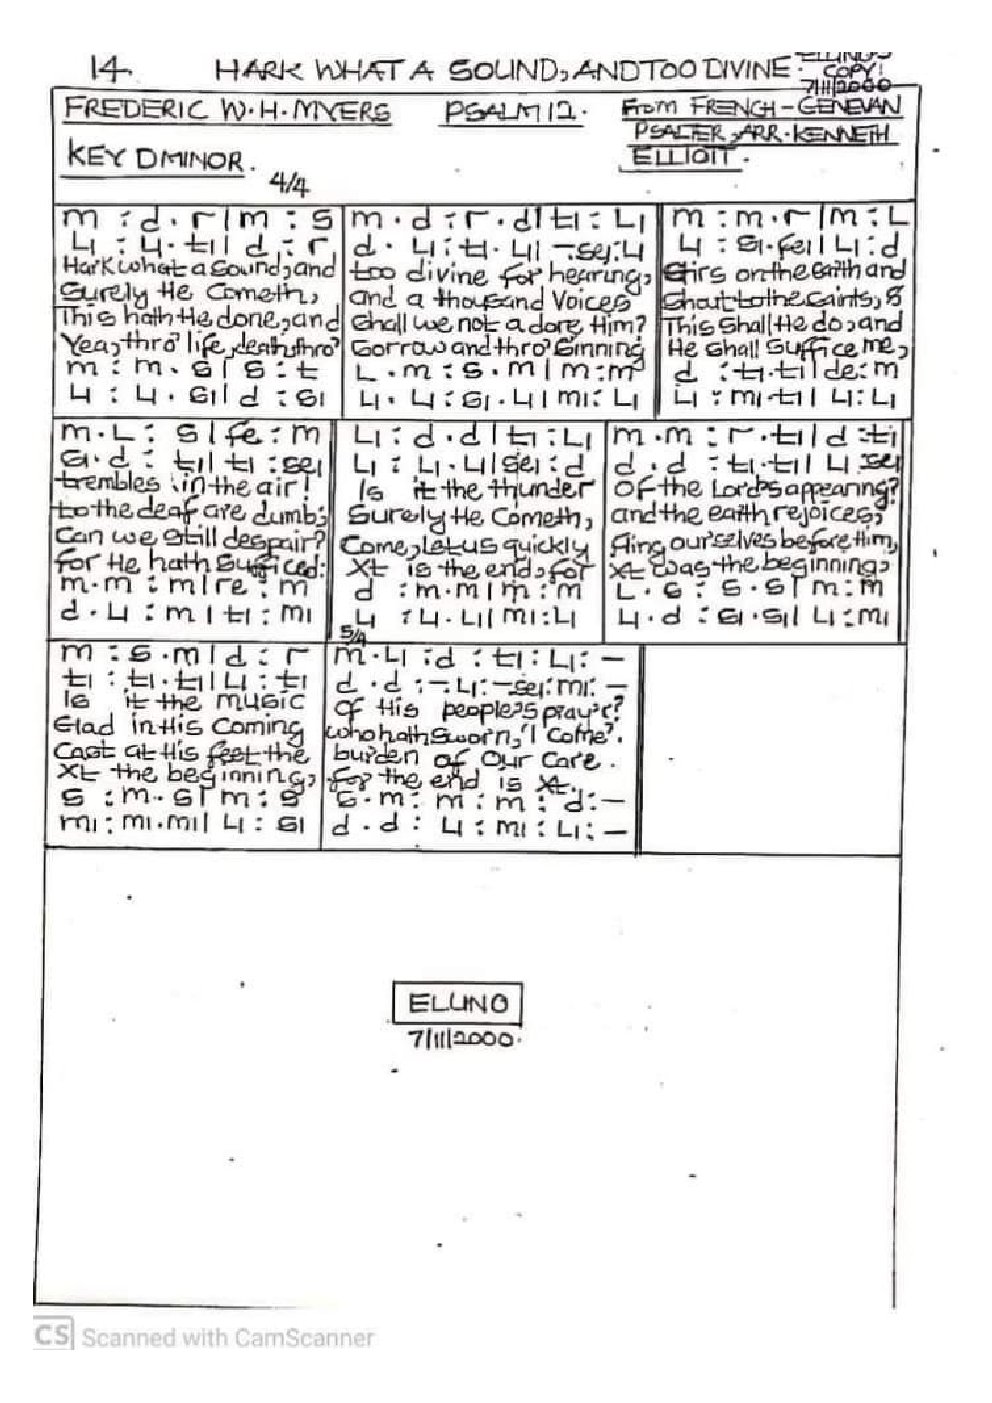 14. HARK WHAT A SOUND, AND TOO DIVINE:
COPY!
7/11/2000
FREDERIC W.H. MYERS PSALM 12. From FRENCH-GENEVAN
PSALTER, ARR. KENNETH
ELLIOTT.
KEY D MINOR.
4/4
m : d . r | m : s
l₁ : l₁ . t₁ | d : r
Hark what a sound, and
Surely He Cometh,
This hath He done, and
Yea, thro' life, death, thro'
m : m . s | s : t
l₁ : l₁ . s₁ | d : s₁
m . d : r . d | t₁ : l₁
d . l₁ : t₁ . l₁ | -se₁ : l₁
too divine for hearing,
and a thousand Voices
Shall we not adore Him?
Sorrow and thro' Sinning
L . m : s . m | m : m
l₁ . l₁ : s₁ . l₁ | m₁ : l₁
m : m . r | m : L
l₁ : s₁ . fe₁ | l₁ : d
Stirs on the earth and
Shout to the Saints, &
This Shall He do, and
He Shall Suffice me,
d : t₁ . t₁ | de : m
l₁ : m₁ . t₁ | l₁ : l₁
m . L : s | fe : m
s₁ . d : t₁ | t₁ : se₁
trembles in the air!
to the deaf are dumb;
Can we still despair?
for He hath Sufficed:
m . m : m | re : m
d . l₁ : m | t₁ : m₁
l₁ : d . d | t₁ : l₁
l₁ : l₁ . l₁ | se₁ : d
Is it the thunder
Surely He Cometh,
Come, let us quickly
Xt is the end, for
d : m . m | m : m
l₁ : l₁ . l₁ | m₁ : l₁
m . m : r . t₁ | d : t₁
d . d : t₁ . t₁ | l₁ se₁
Of the Lord's appearing?
and the earth rejoices,
fling ourselves before Him,
Xt was the beginning,
L . s : s . s | m : m
l₁ . d : s₁ . s₁ | l₁ : m₁
m : s . m | d : r
t₁ : t₁ . t₁ | l₁ : t₁
Is it the music
Glad in His Coming
Cast at His feet the
Xt the beginning,
s : m . s | m : s
m₁ : m₁ . m₁ | l₁ : s₁
5/4
m . l₁ : d : t₁ : l₁ : -
d . d : - . l₁ : -se₁ : m₁ : -
Of His people's pray'r?
who hath Sworn, 'I Come'.
burden of our Care.
for the end is Xt.
s . m : m : m : d : -
d . d : l₁ : m₁ : l₁ : -
ELLINO
7/11/2000.
CS Scanned with CamScanner